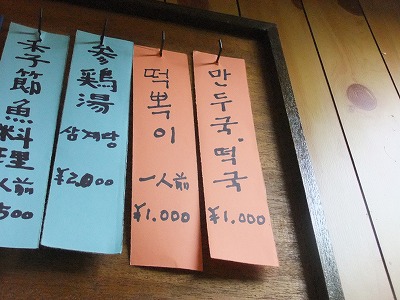 季節魚料理
人前
500
参鶏湯
삼계탕
¥2,000
떡뽁이
一人前
¥1.000
만두국.떡국
¥1.000